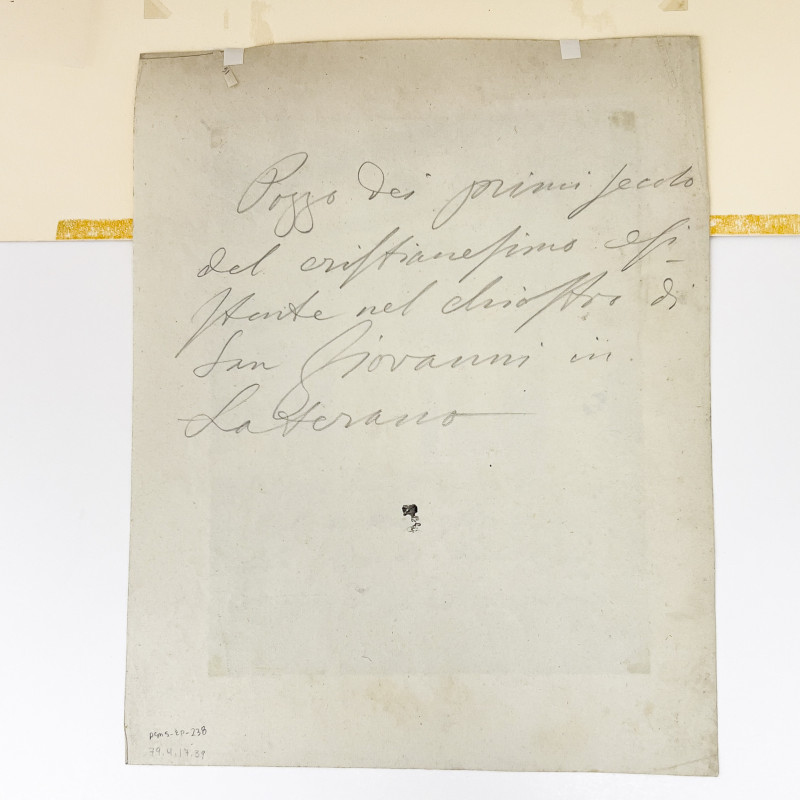 Pozzo dei primi secolo
del cristianesimo esi-
stente nel chiostro di
San Giovanni in
Laterano
79.4.17.39